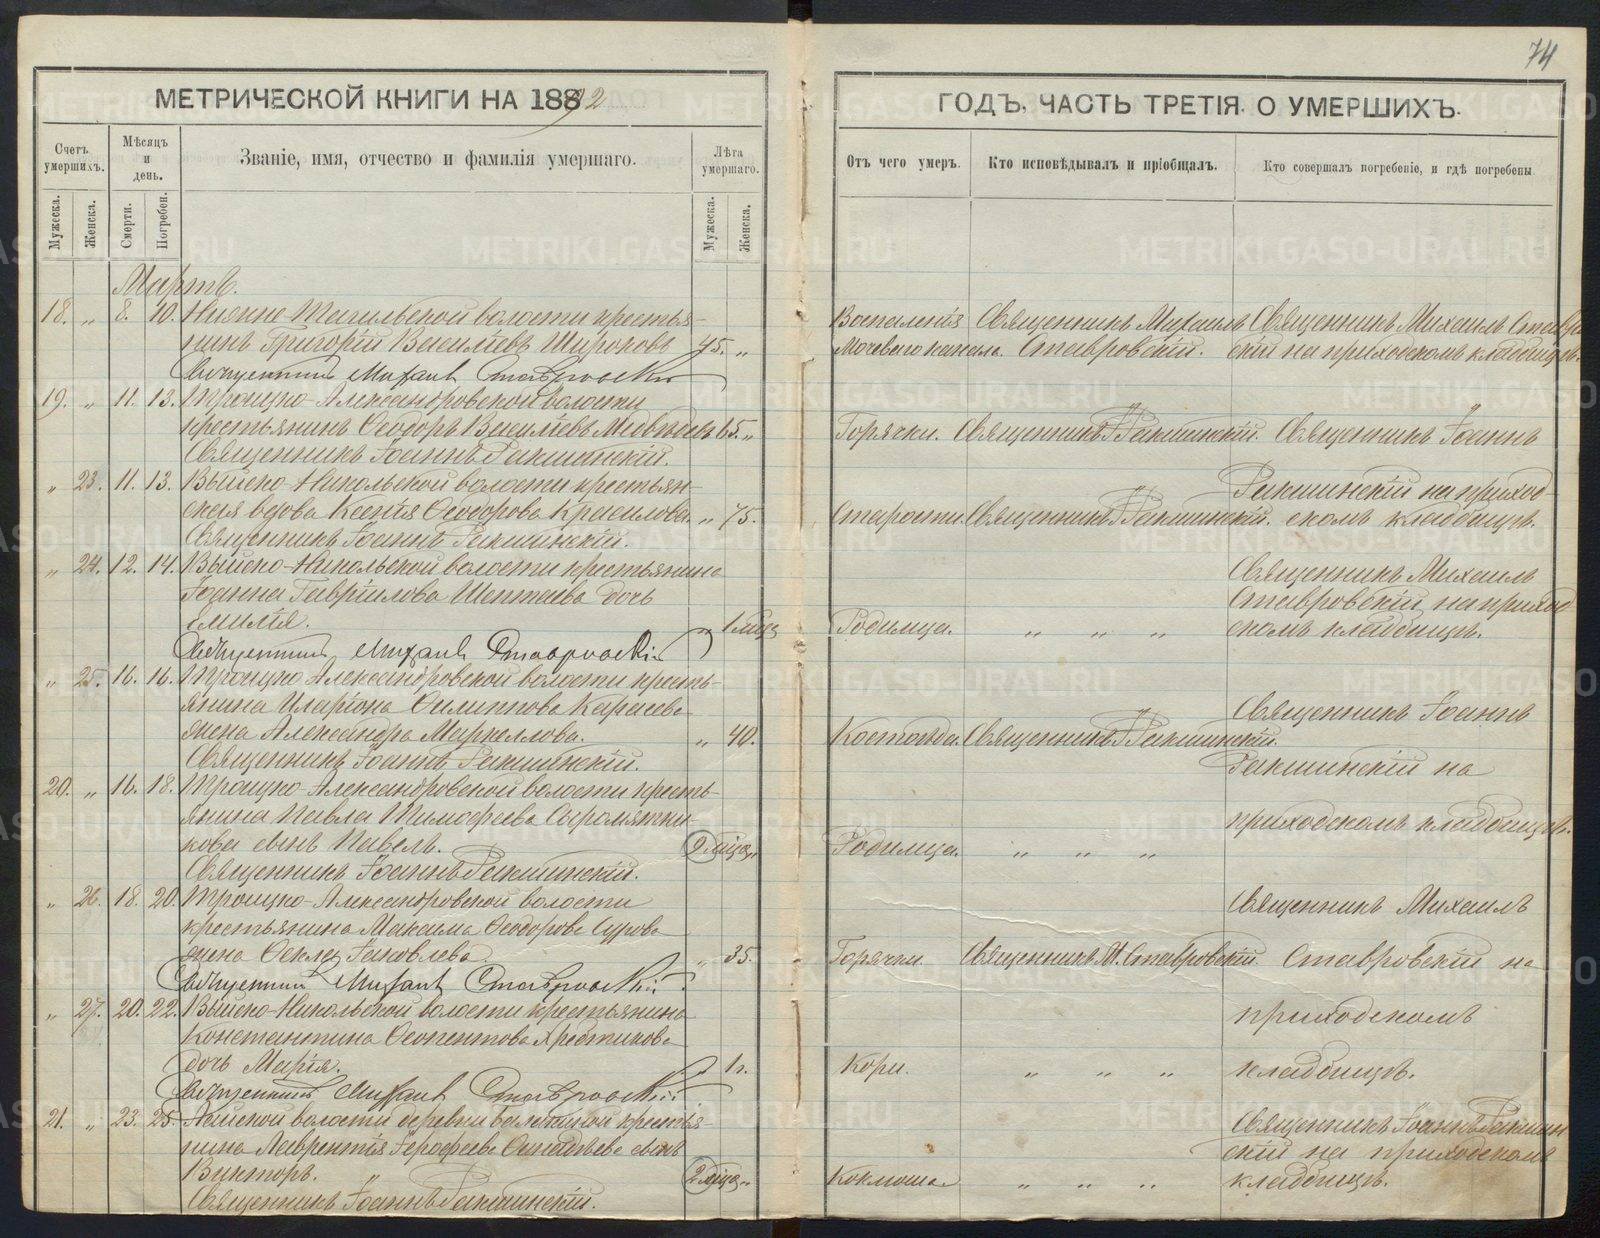 74
МЕТРИЧЕСКОЙ КНИГИ НА 1892
ГОДЪ, ЧАСТЬ ТРЕТІЯ. О УМЕРШИХЪ.
Счетъ умершихъ.
Мѣсяцъ и день.
Званіе, имя, отчество и фамилія умершаго.
Лѣта умершаго.
Отъ чего умеръ.
Кто исповѣдывалъ и пріобщалъ.
Кто совершалъ погребеніе, и гдѣ погребены
Мужеска.
Женска.
Смерти.
Погребен.
Мужеска.
Женска.
Мартъ.
18. „ 8. 10. Нижне Тагильской волости крестья-
нинъ Григорій Васильевъ Широковъ 45. „
Священникъ Михаилъ Ставровскій
19. „ 11. 13. Троицко-Александровской волости
крестьянинъ Ѳеодоръ Васильевъ Медвѣдевъ 65. „
Священникъ Іоаннъ Ракшинскій.
„ 23. 11. 13. Выйско-Никольской волости крестьян-
ская вдова Ксенія Ѳеодорова Красилова. „ 75.
Священникъ Іоаннъ Ракшинскій.
„ 24. 12. 14. Выйско-Никольской волости крестьянина
Іоанна Гавріилова Шептаева дочь
Емилія. „ 1 мца
Священникъ Михаилъ Ставровскій
„ 25. 16. 16. Троицко Александровской волости кресть-
янина Иларіона Филиппова Карасева
жена Александра Маркеллова. „ 40.
Священникъ Іоаннъ Ракшинскій.
20. „ 16. 18. Троицко-Александровской волости кресть-
янина Павла Тимофеева Сыромятни-
кова сынъ Павелъ. 2 мца „
Священникъ Іоаннъ Ракшинскій.
„ 26. 18. 20. Троицко-Александровской волости
крестьянина Максима Ѳеодорова Сурова
жена Ѳекла Іаковлева „ 35.
Священникъ Михаилъ Ставровскій
„ 27. 20. 22. Выйско-Никольской волости крестьянина
Константина Ѳеопентова Хребтикова
дочь Марія. „ 1 г.
Священникъ Михаилъ Ставровскій
21. „ 23. 25. волости деревни крестья-
нина Лаврентія Ерофеева сынъ
Викторъ. 2 мца „
Священникъ Іоаннъ Ракшинскій.
Воспаленія Священникъ Михаилъ Священникъ Михаилъ Ставров
Мочеваго канала. Ставровскій. скій на приходскомъ кладбищѣ.
Горячки. Священникъ І. Ракшинскій. Священникъ Іоаннъ
Ракшинскій на приход-
Старости. Священникъ І. Ракшинскій. скомъ кладбищѣ.
Священникъ Михаилъ
Ставровскій, на приход
Родимца. „ „ „ скомъ кладбищѣ.
Священникъ Іоаннъ
Костоѣда. Священникъ І. Ракшинскій.
Ракшинскій на
приходскомъ кладбищѣ.
Родимца. „ „ „
Священникъ Михаилъ
Горячки. Священникъ М. Ставровскій Ставровскій на
приходскомъ
Кори. „ „ „ кладбищѣ.
Священникъ Іоаннъ Ракшин
скій на приходскомъ
Коклюша. „ „ „ кладбищѣ.
METRIKI.GASO-URAL.RU